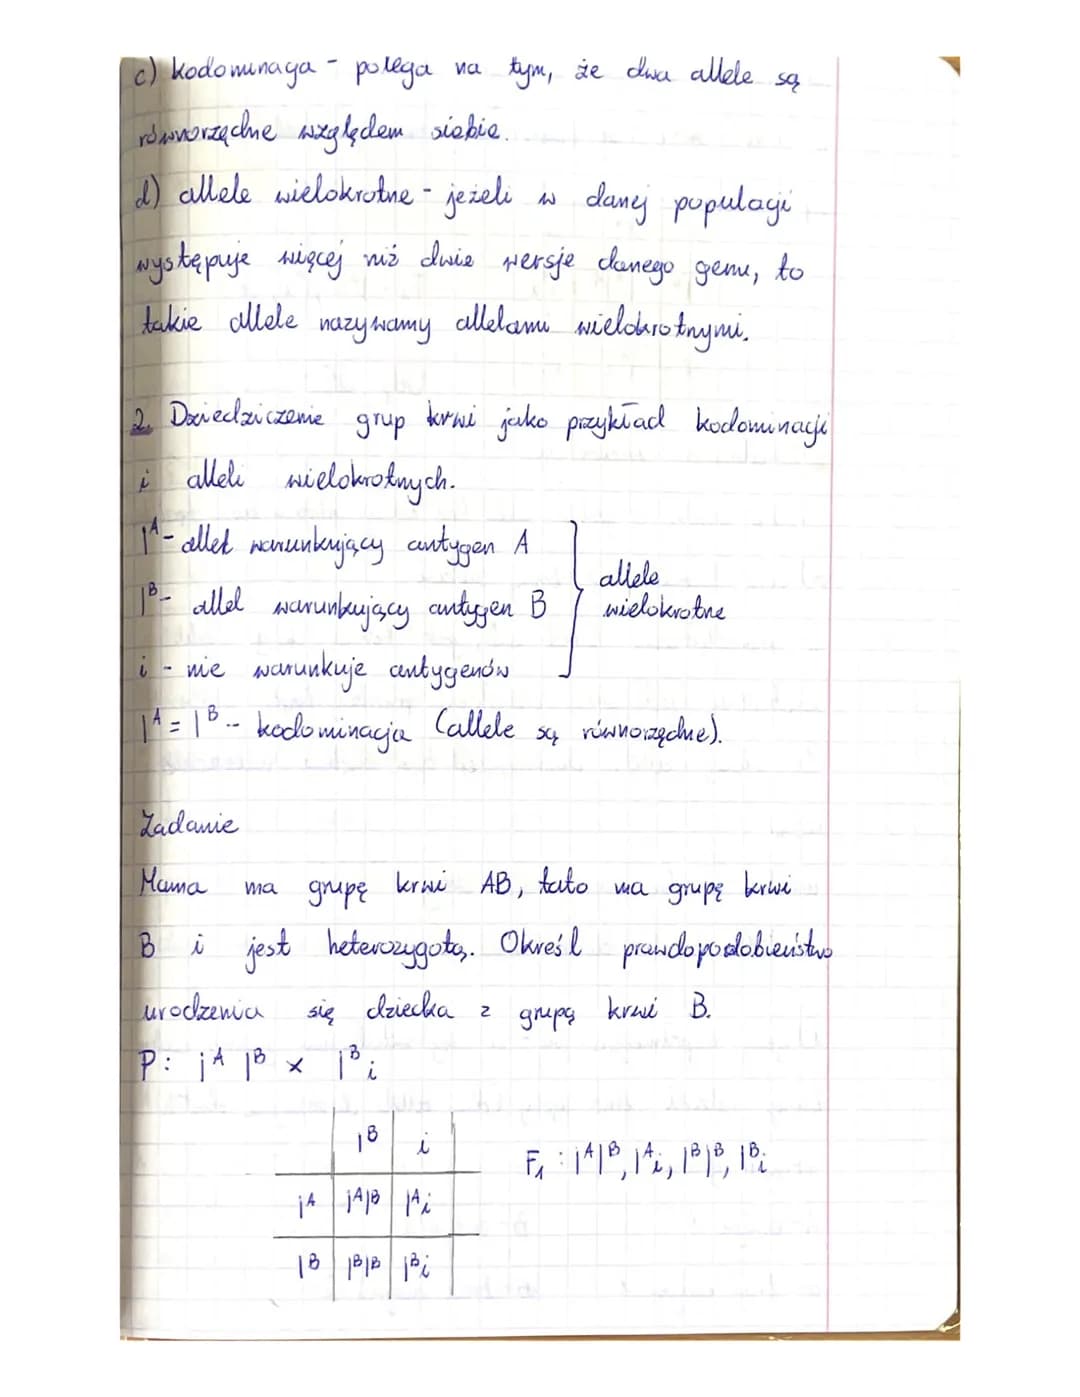 c) kodominacja - polega na tym, że dwa allele są
równorzędne względem siebie.
d) allele wielokrotne - jeżeli w danej populacji
występuje więcej niż dwie wersje danego genu, to
takie allele nazywamy allelami wielokrotnymi.
2. Dziedziczenie grup krwi jako przykład kodominacji
i alleli wielokrotnych.
I^A - allel warunkujący antygen A
I^B - allel warunkujący antygen B
i - nie warunkuje antygenów
allele
wielokrotne
I^A = I^B - kodominacja (allele są równorzędne).
Zadanie
Mama ma grupę krwi AB, tato ma grupę krwi
B i jest heterozygotą. Określ prawdopodobieństwo
urodzenia się dziecka z grupą krwi B.
P: I^A I^B x I^B i
I^B i
I^A I^A I^B I^A i
I^B I^B I^B I^B i
F₁: I^A I^B, I^A i, I^B I^B, I^B i